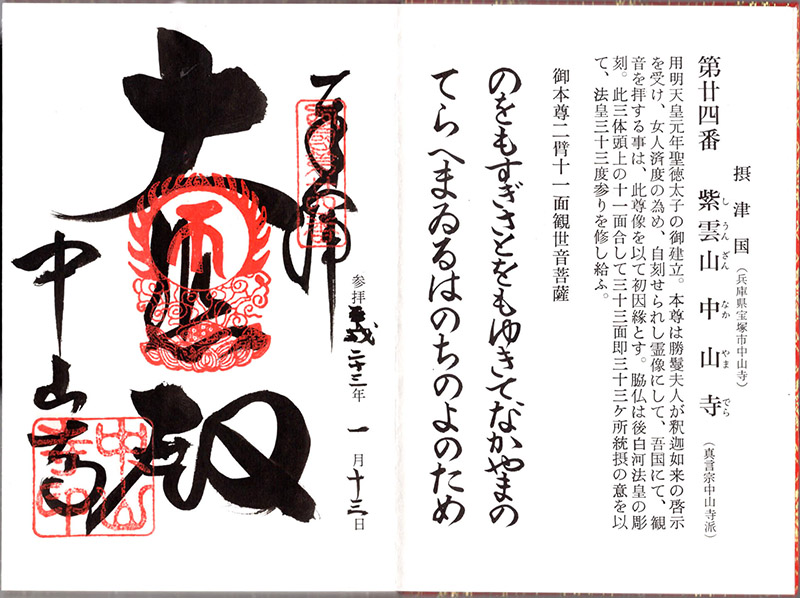 摂津国（兵庫県宝塚市中山寺）
第廿四番　紫雲山中山寺（真言宗中山寺派）
しうんざん　なかやまでら
用明天皇元年聖徳太子の御建立。本尊は勝鬘夫人が釈迦如来の啓示
を受け、女人済度の為め、自刻せられし霊像にして、吾国にて、観
音を拝する事は、此尊像を以て初因縁とす。脇仏は後白河法皇の彫
刻。此三体頭上の十一面合して三十三面即三十三ヶ所統摂の意を以
て、法皇三十三度参りを修し給ふ。
御本尊二臂十一面観世音菩薩
のをもすぎさとをもゆきてなかやまの
てらへまゐるはのちのよのため
参拝平成二十三年一月十三日
奉拝
大悲殿
中山寺